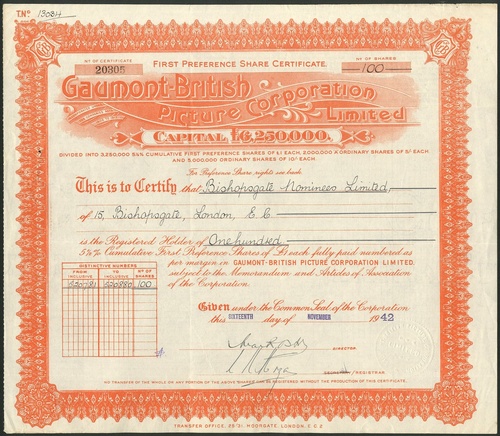 T.Nº 13084
Nº OF CERTIFICATE
20305
FIRST PREFERENCE SHARE CERTIFICATE.
Nº OF SHARES
100
Gaumont-British
Picture Corporation
Limited
CAPITAL £6,250,000.
DIVIDED INTO 3,250,000 5½% CUMULATIVE FIRST PREFERENCE SHARES OF £1 EACH, 2,000,000 A ORDINARY SHARES OF 5/- EACH
AND 5,000,000 ORDINARY SHARES OF 10/- EACH
For Preference Share rights see back.
This is to Certify that Bishopsgate Nominees Limited,
of 15, Bishopsgate, London, E.C.
is the Registered Holder of One hundred
5½% Cumulative First Preference Shares of £1 each fully paid numbered as
per margin in GAUMONT-BRITISH PICTURE CORPORATION LIMITED,
subject to the Memorandum and Articles of Association
of the Corporation.
DISTINCTIVE NUMBERS
FROM INCLUSIVE
TO INCLUSIVE
Nº OF SHARES
100
Given under the Common Seal of the Corporation
this SIXTEENTH day of NOVEMBER 1942
DIRECTOR
REGISTRAR
NO TRANSFER OF THE WHOLE OR ANY PORTION OF THE ABOVE SHARES CAN BE REGISTERED WITHOUT THE PRODUCTION OF THIS CERTIFICATE.
TRANSFER OFFICE: 29/31 MOORGATE, LONDON, E.C.2